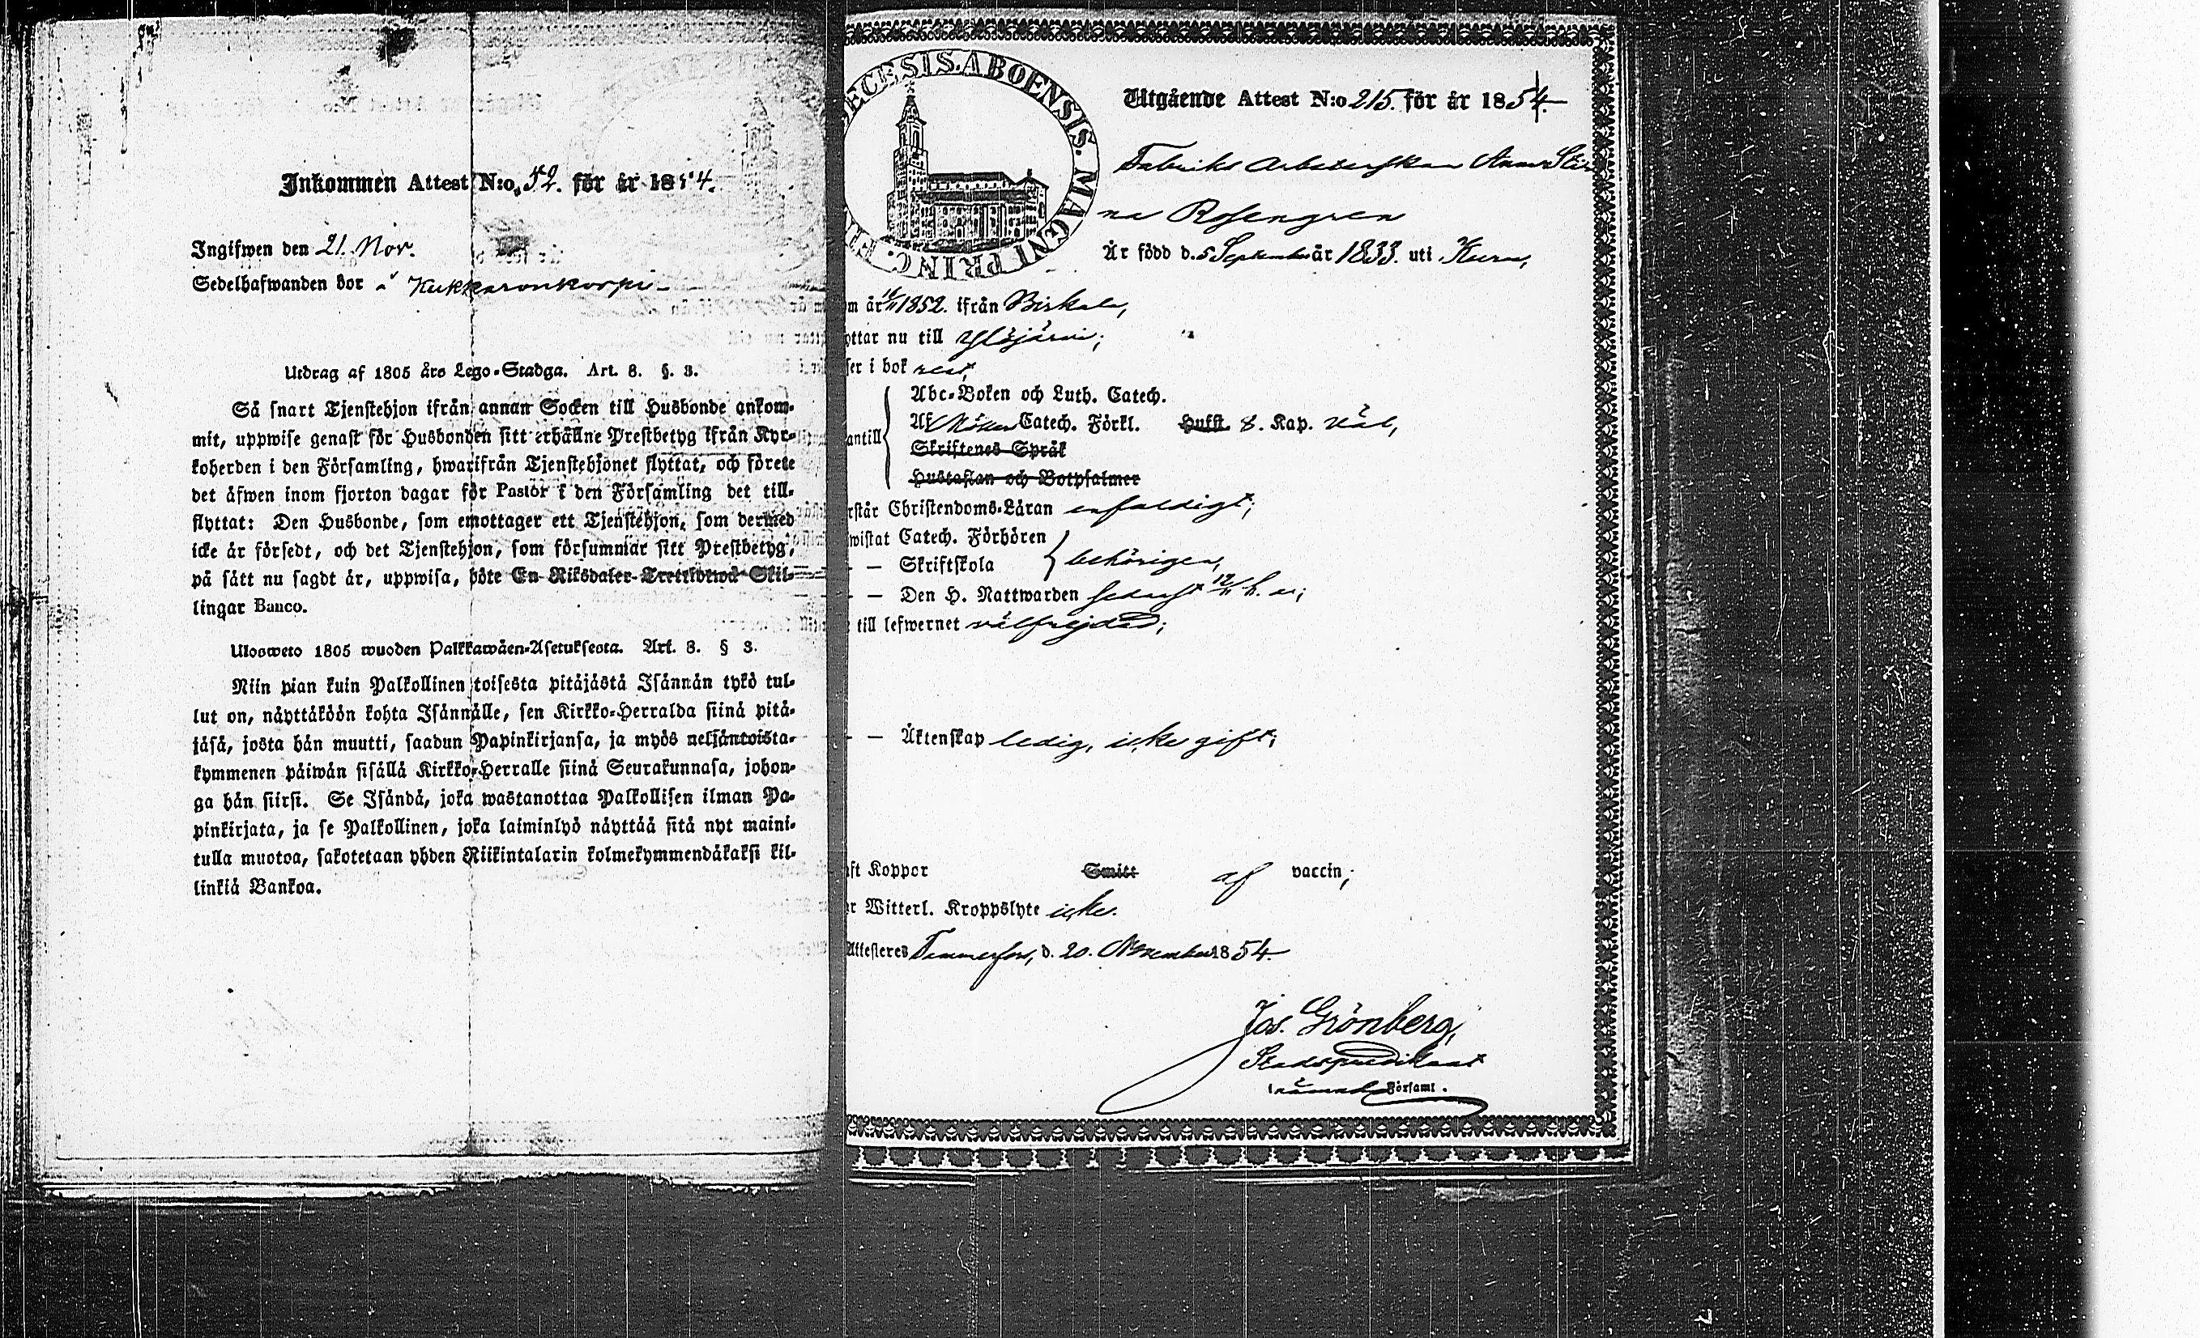 Inkommen Attest N:o 52. för år 1854.
Ingifwen den 21. Nov.
Sedelhafwanden bor å Kukkaronkorpi
Utdrag af 1805 års Lego-Stadga. Art. 8. §. 3.
Så snart Tjenstehjon ifrån annan Socken till Husbonde ankom-
mit, uppwise genast för Husbonden sitt erhållne Prestbetyg ifrån Kyr-
koherden i den Församling, hwarifrån Tjenstehjonet flyttat, och förete
det äfwen inom fjorton dagar för Pastor i den Församling det till-
flyttat: Den Husbonde, som emottager ett Tjenstehjon, som dermed
icke är försedt, och det Tjenstehjon, som försummar sitt Prestbetyg,
på sätt nu sagdt är, uppwisa, böte En Riksdaler Trettiotwå Skil-
lingar Banco.
Uloosweto 1805 wuoden Palkkawäen-Asetuksesta. Art. 8. § 3.
Niin pian kuin Palkollinen toisesta pitäjästä Isännän tykö tul-
lut on, näyttäköön kohta Isännälle, sen Kirkko-Herralda siinä pitä-
jäsä, josta hän muutti, saadun Papinkirjansa, ja myös neljäntoista-
kymmenen päiwän sisällä Kirkko-Herralle siinä Seurakunnasa, johon-
ga hän siirsi. Se Isändä, joka wastanottaa Palkollisen ilman Pa-
pinkirjata, ja se Palkollinen, joka laiminlyö näyttää sitä nyt maini-
tulla muotoa, sakotetaan yhden Riikintalarin kolmekymmendäkaksi kil-
linkiä Bankoa.
ECESIS. ABOENSIS. MAGNI PRINC. FI
Utgående Attest N:o 215. för år 1854.
Fabriks Arbeterskan Anna Sti
na Rosengren
Är född d. 5 September år 1833. uti Kuru,
om år 1852. ifrån Birkala,
yttar nu till Ylöjärvi;
ser i bok rent,
Abc-Boken och Luth. Catech.
Af Catech. Förkl. Hufst 8. Kap. väl,
antill
Skriftenes Språk
Hustaflan och Botpsalmer
rstår Christendoms-Läran enfaldigt;
wistat Catech. Förhören
— — Skriftskola behörigen,
— — Den H. Nattwarden sednast 12/11 h. a.;
till lefwernet välfrejdad;
— — Äktenskap ledig, icke gift;
aft Koppor Smitt af vaccin;
r Witterl. Kroppslyte icke.
Attesteres Tammerfors, d. 20. November 1854.
Jos. Grönberg,
Stadspredikant
Församl.